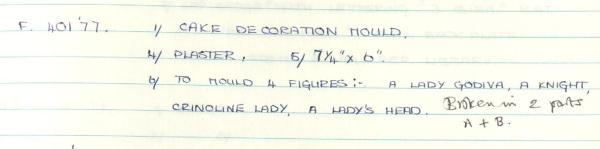 F. 401'77. 1/ CAKE DECORATION MOULD.
4/ PLASTER, 5/ 7¼" x 6".
6/ TO MOULD 4 FIGURES:- A LADY GODIVA, A KNIGHT,
CRINOLINE LADY, A LADY'S HEAD. Broken in 2 parts
A + B.